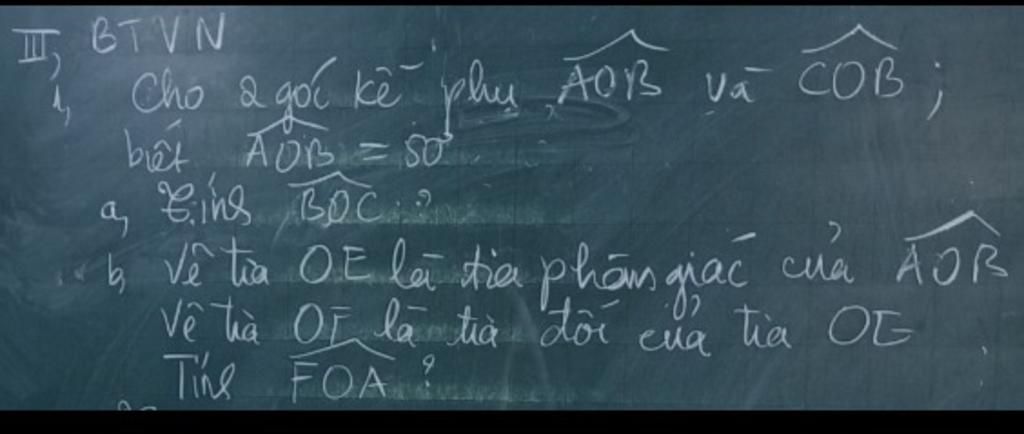 III, BTVN
1, Cho 2 góc kề phụ AOB và COB ;
biết AOB = 50°
a, Tính BOC ?
b, Vẽ tia OE là tia phân giác của AOB
Vẽ tia OF là tia đối của tia OE
Tính FOA ?